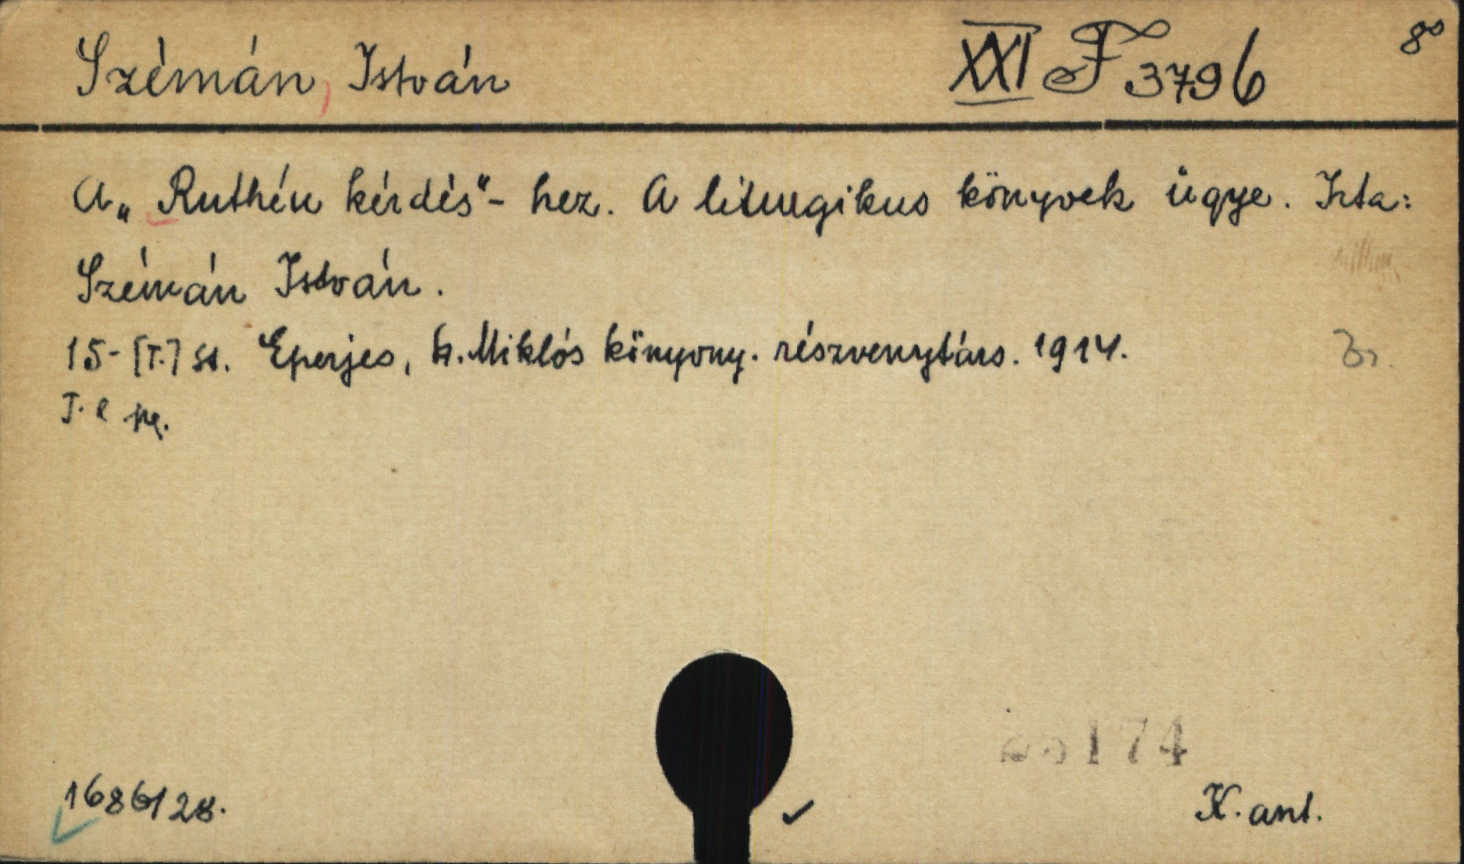 Szémán, István XXI F 3796 8°
A „Ruthén kérdés"-hez. A liturgikus könyvek ügye. Irta:
Szémán István.
15-[T.] St. Eperjes, Miklós könyvny. részvenytárs. 1914.
174
1686/28.
K. ant.